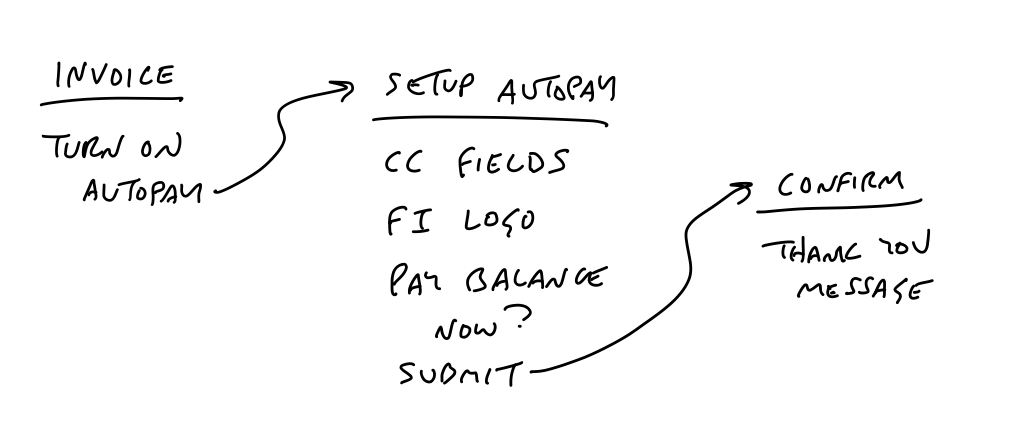 INVOICE
TURN ON
AUTOPAY
SETUP AUTOPAY
CC FIELDS
FI LOGO
PAY BALANCE
NOW?
SUBMIT
CONFIRM
THANK YOU
MESSAGE